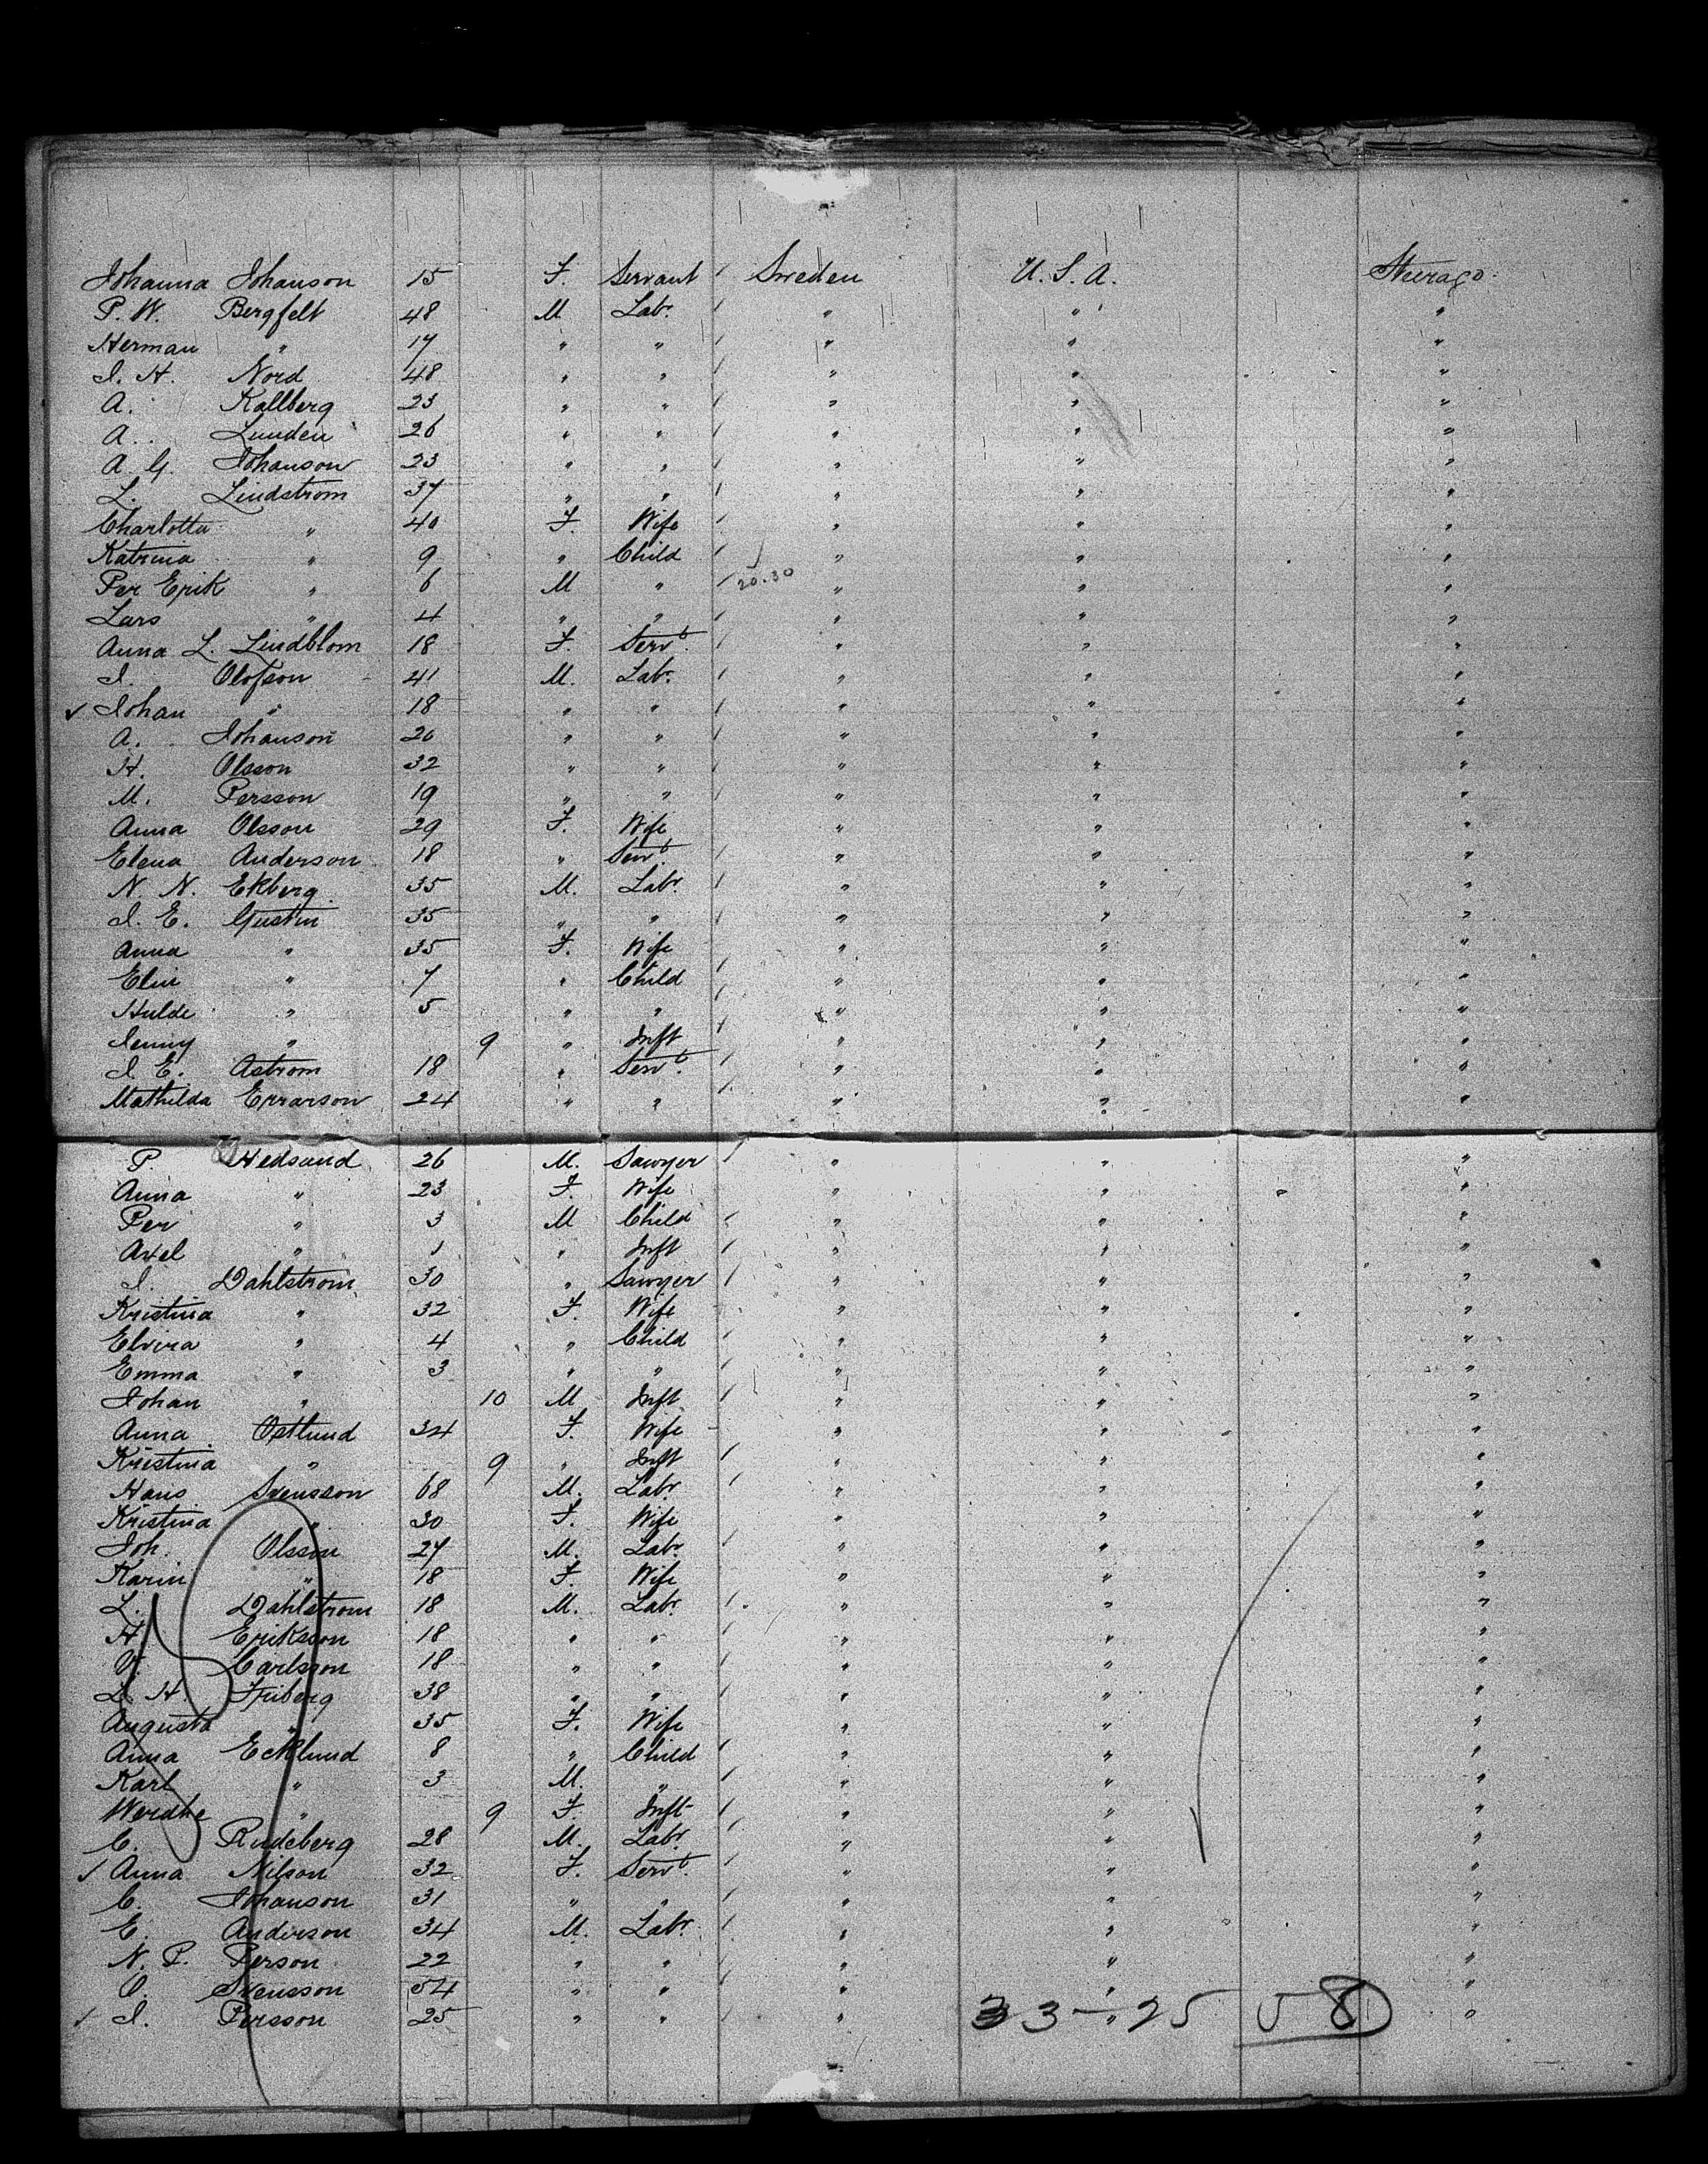 Johanna Johanson 15 F. Servant / Sweden U.S.A. Steerage
P. W. Bergfelt 48 M Labr / " " "
Herman " 17 " " / " " "
J. H. Nord 48 " " / " " "
A. Kallberg 23 " " / " " "
A. Lunden 26 " " / " " "
A. G. Johanson 23 " " / " " "
L. Lindstrom 37 " " / " " "
Charlotta " 40 F. Wife / " " "
Katrina " 9 " Child / " " "
Per Erik " 6 M " / 20.30 " " "
Lars " 4 " " / " " "
Anna L. Lindblom 18 F. Servt. / " " "
J. Olofson 41 M. Labr. / " " "
✓ Johan " 18 " " / " " "
A. Johanson 20 " " / " " "
H. Olsson 32 " " / " " "
M. Persson 19 " " " " "
Anna Olsson 29 F. Wife " " "
Elena Anderson 18 " Servt. / " " "
N. N. Ekberg 35 M. Labr. / " " "
J. E. Gustin 35 " " / " " "
Anna " 35 F. Wife / " " "
Elin " 7 " Child / " " "
Hulde " 5 " " / " " "
Jenny " 9 " Inft / " " "
J. E. Astrom 18 " Servt. / " " "
Mathilda Errarson 24 " " / " " "
P Hedsand 26 M. Sawyer / " " "
Anna " 23 F. Wife " " "
Per " 3 M Child / " " "
Axel " 1 " Inft / " " "
J. Dahlstrom 30 " Sawyer / " " "
Kristina " 32 F. Wife / " " "
Elvira " 4 " Child / " " "
Emma " 3 " " / " " "
Johan " 10 M Inft / " " "
Anna Ostlund 34 F. Wife " " "
Kristina " 9 " Inft / " " "
Hans Svensson 68 M. Labr / " " "
Kristina " 30 F. Wife " " "
Joh. Olsson 27 M. Labr. / " " "
Karin " 18 F. Wife / " " "
L. Dahlstrom 18 M. Labr. / " " "
H. Erikson 18 " " / " " "
Carlsson 18 " " / " " "
H. Friberg 38 " " / " " "
Augusta " 35 F. Wife / " " "
Anna Ecklund 8 " Child / " " "
Karl " 3 M. " / " " "
" 9 F. Inft / " " "
C. Rudeberg 28 M. Labr. / " " "
✓ Anna Nilson 32 F. Servt. / " " "
C. Johanson 31 " " / " " "
E. Anderson 34 M. Labr. / " " "
N. P. Person 22 " " / " " "
O. Svensson 54 " " / " " "
✓ J. Persson 25 " " / " " "
33-25 58